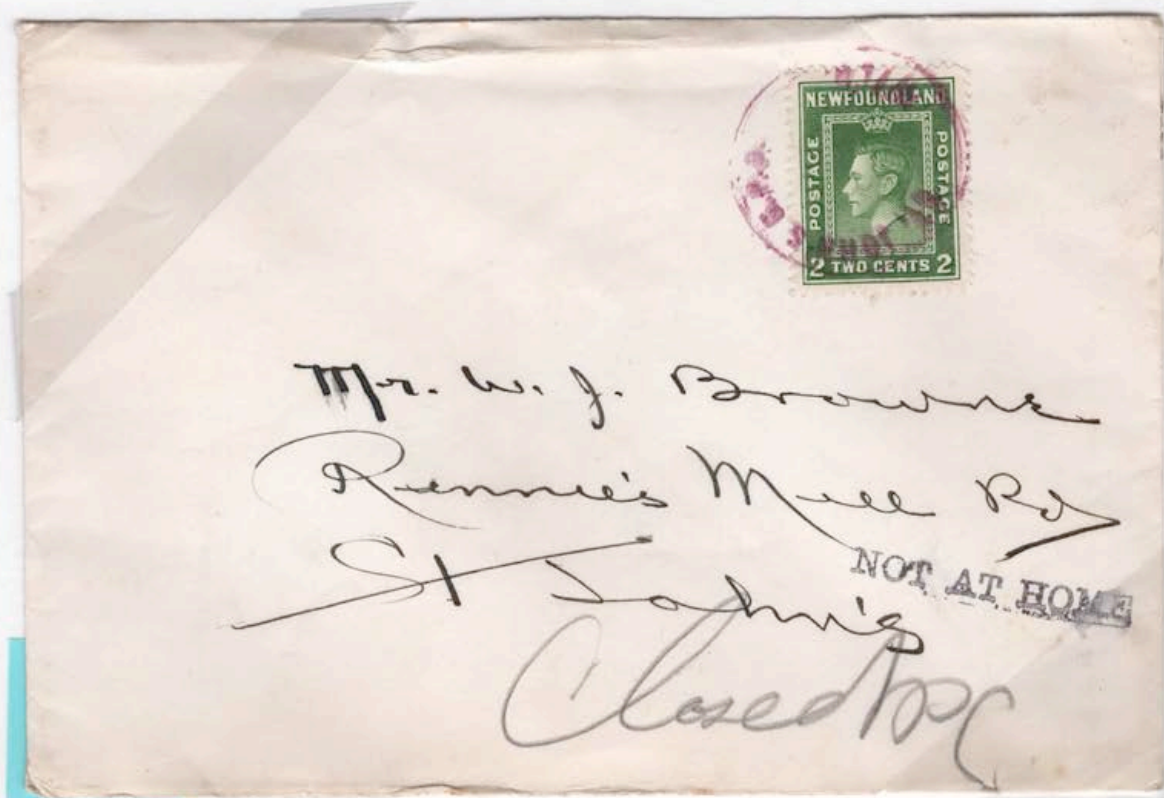 NEWFOUNDLAND
POSTAGE
POSTAGE
2 TWO CENTS 2
Mr. W. J. Browne
Rennie's Mill Rd
St John's
NOT AT HOME
Closed